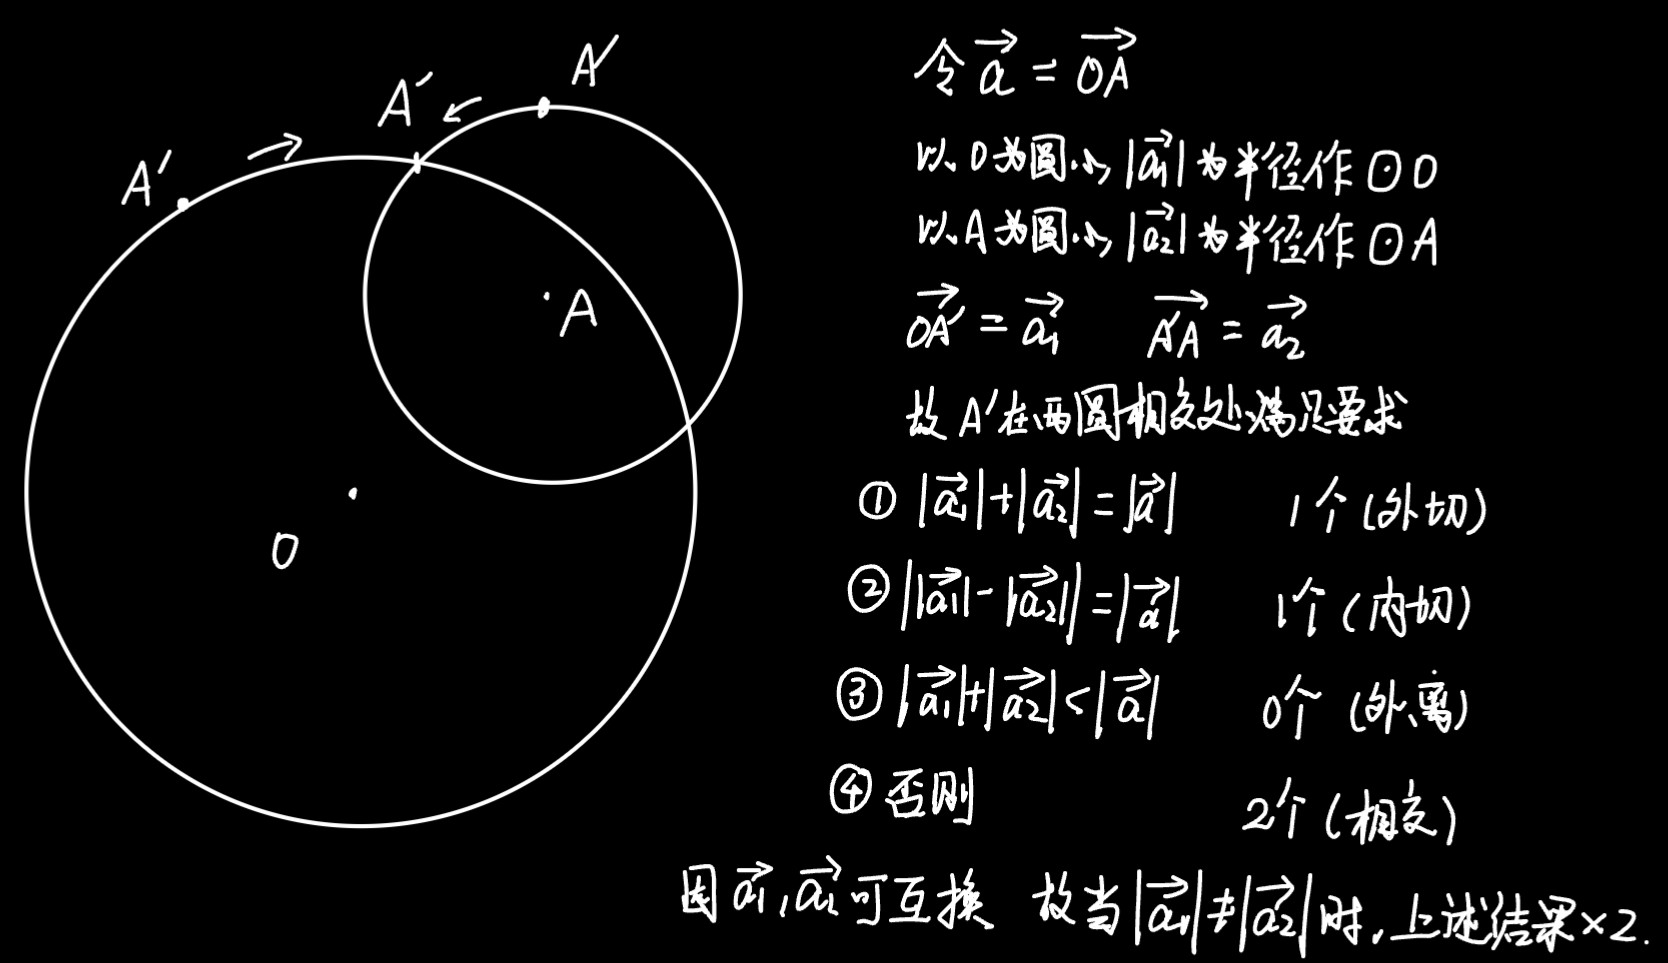 A′
A′
A′
A
O
令 a⃗ = OA⃗
以O为圆心,|a⃗₁|为半径作⊙O
以A为圆心,|a⃗₂|为半径作⊙A
OA′⃗ = a⃗₁ A′A⃗ = a⃗₂
故A′在两圆相交处满足要求
① |a⃗₁|+|a⃗₂|=|a⃗| 1个(外切)
② ||a⃗₁|-|a⃗₂||=|a⃗| 1个(内切)
③ |a⃗₁|+|a⃗₂|<|a⃗| 0个(外离)
④ 否则 2个(相交)
因a⃗₁,a⃗₂可互换 故当|a⃗₁|≠|a⃗₂|时,上述结果×2.